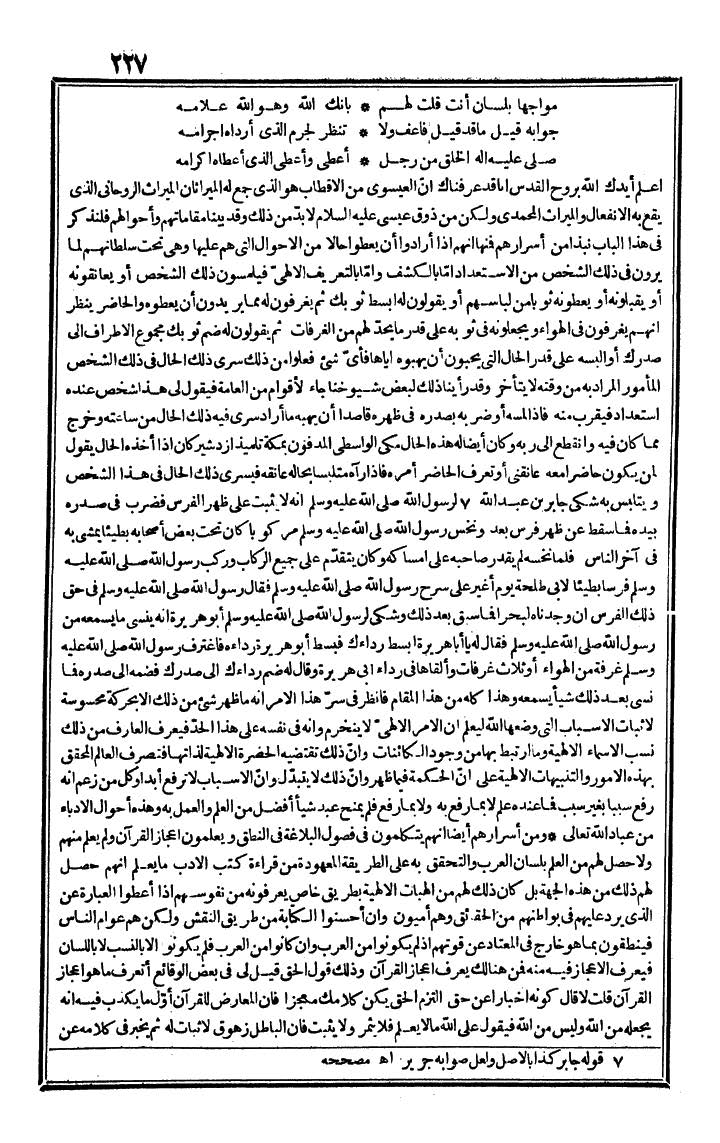 ٢٢٧
مواجها بلسان أنت قلت لهم * بانك الله وهو الله علامه
جوابه قيل ما قد قيل فاعف ولا * تنظر لجرم الذى أرداه اجرامه
صلى عليه اله الخلق من رجل * أعطى وأعطى الذى أعطاه اكرامه
اعلم أيدك الله بروح القدس انا قد عرفناك انّ العيسوى من الاقطاب هو الذى جمع له الميراثان الميراث الروحانى الذى
يقع به الانفعال والميراث المحمدى ولكن من ذوق عيسى عليه السلام لا بدّ من ذلك وقد بينا مقاماتهم وأحوالهم فلنذكر
فى هذا الباب نبذا من أسرارهم فمنها انهم اذا أرادوا أن يعطوا حالا من الاحوال التى هم عليها وهى تحت سلطانهم لما
يرون فى ذلك الشخص من الاستعداد امّا بالكشف وامّا بالتعريف الالهىّ فيلمسون ذلك الشخص أو يعانقونه
أو يقبلونه أو يعطونه ثوبا من لباسهم أو يقولون له ابسط ثوبك ثم يغرفون له مما يريدون أن يعطوه والحاضر ينظر
انهم يغرفون فى الهواء ويجعلونه فى ثوبه على قدر ما يحدّ لهم من الغرفات ثم يقولون له ضم ثوبك مجموع الاطراف الى
صدرك أو البسه على قدر الحال التى يحبون أن يهبوه اياها فأىّ شئ فعلوا من ذلك سرى ذلك الحال فى ذلك الشخص
المأمور المراد به من وقته لا يتأخر وقد رأينا ذلك لبعض شيوخنا جاء لأقوام من العامة فيقول لى هذا شخص عنده
استعداد فيقرب منه فاذا لمسه أو ضربه بصدره فى ظهره قاصدا أن يهبه ما أراد سرى فيه ذلك الحال من ساعته وخرج
مما كان فيه وانقطع الى ربه وكان أيضا له هذه الحال مكى الواسطى المدفون بمكة تلميذ ازدشير كان اذا أخذه الحال يقول
لمن يكون حاضرا معه عانقنى أو تعرف الحاضر أمره فاذا رآه متلبسا بحاله عانقه فيسرى ذلك الحال فى هذا الشخص
ويتلبس به شكى جابر بن عبد الله ٧ لرسول الله صلى الله عليه وسلم انه لا يثبت على ظهر الفرس فضرب فى صدره
بيده فما سقط عن ظهر فرس بعد ونخس رسول الله صلى الله عليه وسلم مركوبا كان تحت بعض أصحابه بطيئا يمشى به
فى آخر الناس فلما نخسه لم يقدر صاحبه على امساكه وكان يتقدّم على جميع الركاب وركب رسول الله صلى الله عليه
وسلم فرسا بطيئا لابى طلحة يوم أغير على سرح رسول الله صلى الله عليه وسلم فقال رسول الله صلى الله عليه وسلم فى حق
ذلك الفرس ان وجدناه لبحرا فما سبق بعد ذلك وشكى لرسول الله صلى الله عليه وسلم أبو هريرة انه ينسى ما يسمعه من
رسول الله صلى الله عليه وسلم فقال له يا أبا هريرة ابسط رداءك فبسط أبو هريرة رداءه فاغترف رسول الله صلى الله عليه
وسلم غرفة من الهواء أو ثلاث غرفات وألقاها فى رداء ابى هريرة وقال له ضم رداءك الى صدرك فضمه الى صدره فما
نسى بعد ذلك شيأ يسمعه وهذا كله من هذا المقام فانظر فى سرّ هذا الامر انه ما ظهر شئ من ذلك الا بحركة محسوسة
لاثبات الاسباب التى وضعها الله ليعلم ان الامر الالهىّ لا ينخرم وانه فى نفسه على هذا الحدّ فيعرف العارف من ذلك
نسب الاسماء الالهية وما ارتبط بها من وجود الكائنات وانّ ذلك تقتضيه الحضرة الالهية لذاتها فتصرف العالم المحقق
بهذه الامور والتنبيهات الالهية على انّ الحكمة فيما ظهر وانّ ذلك لا يتبدّل وانّ الاسباب لا ترفع أبدا وكل من زعم انه
رفع سببا بغير سبب فما عنده علم لا بما رفع به ولا بما رفع فلم يمنح عبد شيأ أفضل من العلم والعمل به وهذه أحوال الادباء
من عباد الله تعالى * ومن أسرارهم أيضا انهم يتكلمون فى فصول البلاغة فى النطق ويعلمون اعجاز القرآن ولم يعلم منهم
ولا حصل لهم من العلم بلسان العرب والتحقق به على الطريقة المعهودة من قراءة كتب الادب ما يعلم انهم حصل
لهم ذلك من هذه الجهة بل كان ذلك لهم من الهبات الالهية بطريق خاص يعرفونه من نفوسهم اذا أعطوا العبارة عن
الذى يرد عليهم فى بواطنهم من الحقائق وهم أميون وان أحسنوا الكتابة من طريق النقش ولكن هم عوام الناس
فينطقون بما هو خارج فى المعتاد عن قوتهم اذ لم يكونوا من العرب وان كانوا من العرب فلم يكونوا الا بالنسب لا باللسان
فيعرف الاعجاز فيه منه فمن هنالك يعرف اعجاز القرآن وذلك قول الحق قيل لى فى بعض الوقائع أتعرف ما هو اعجاز
القرآن قلت لا قال كونه اخبارا عن حق التزم الحق يكن كلامك معجزا فان المعارض للقرآن أوّل ما يكذب فيه انه
يجعله من الله وليس من الله فيقول على الله ما لا يعلم فلا يثمر ولا يثبت فان الباطل زهوق لا ثبات له ثم يخبر فى كلامه عن
٧ قوله جابر كذا بالاصل ولعل صوابه جرير اه مصححه